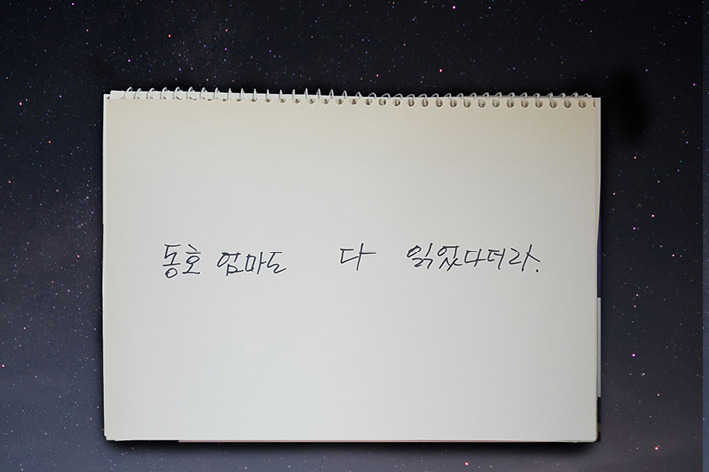 동호 엄마도 다 읽었다더라.